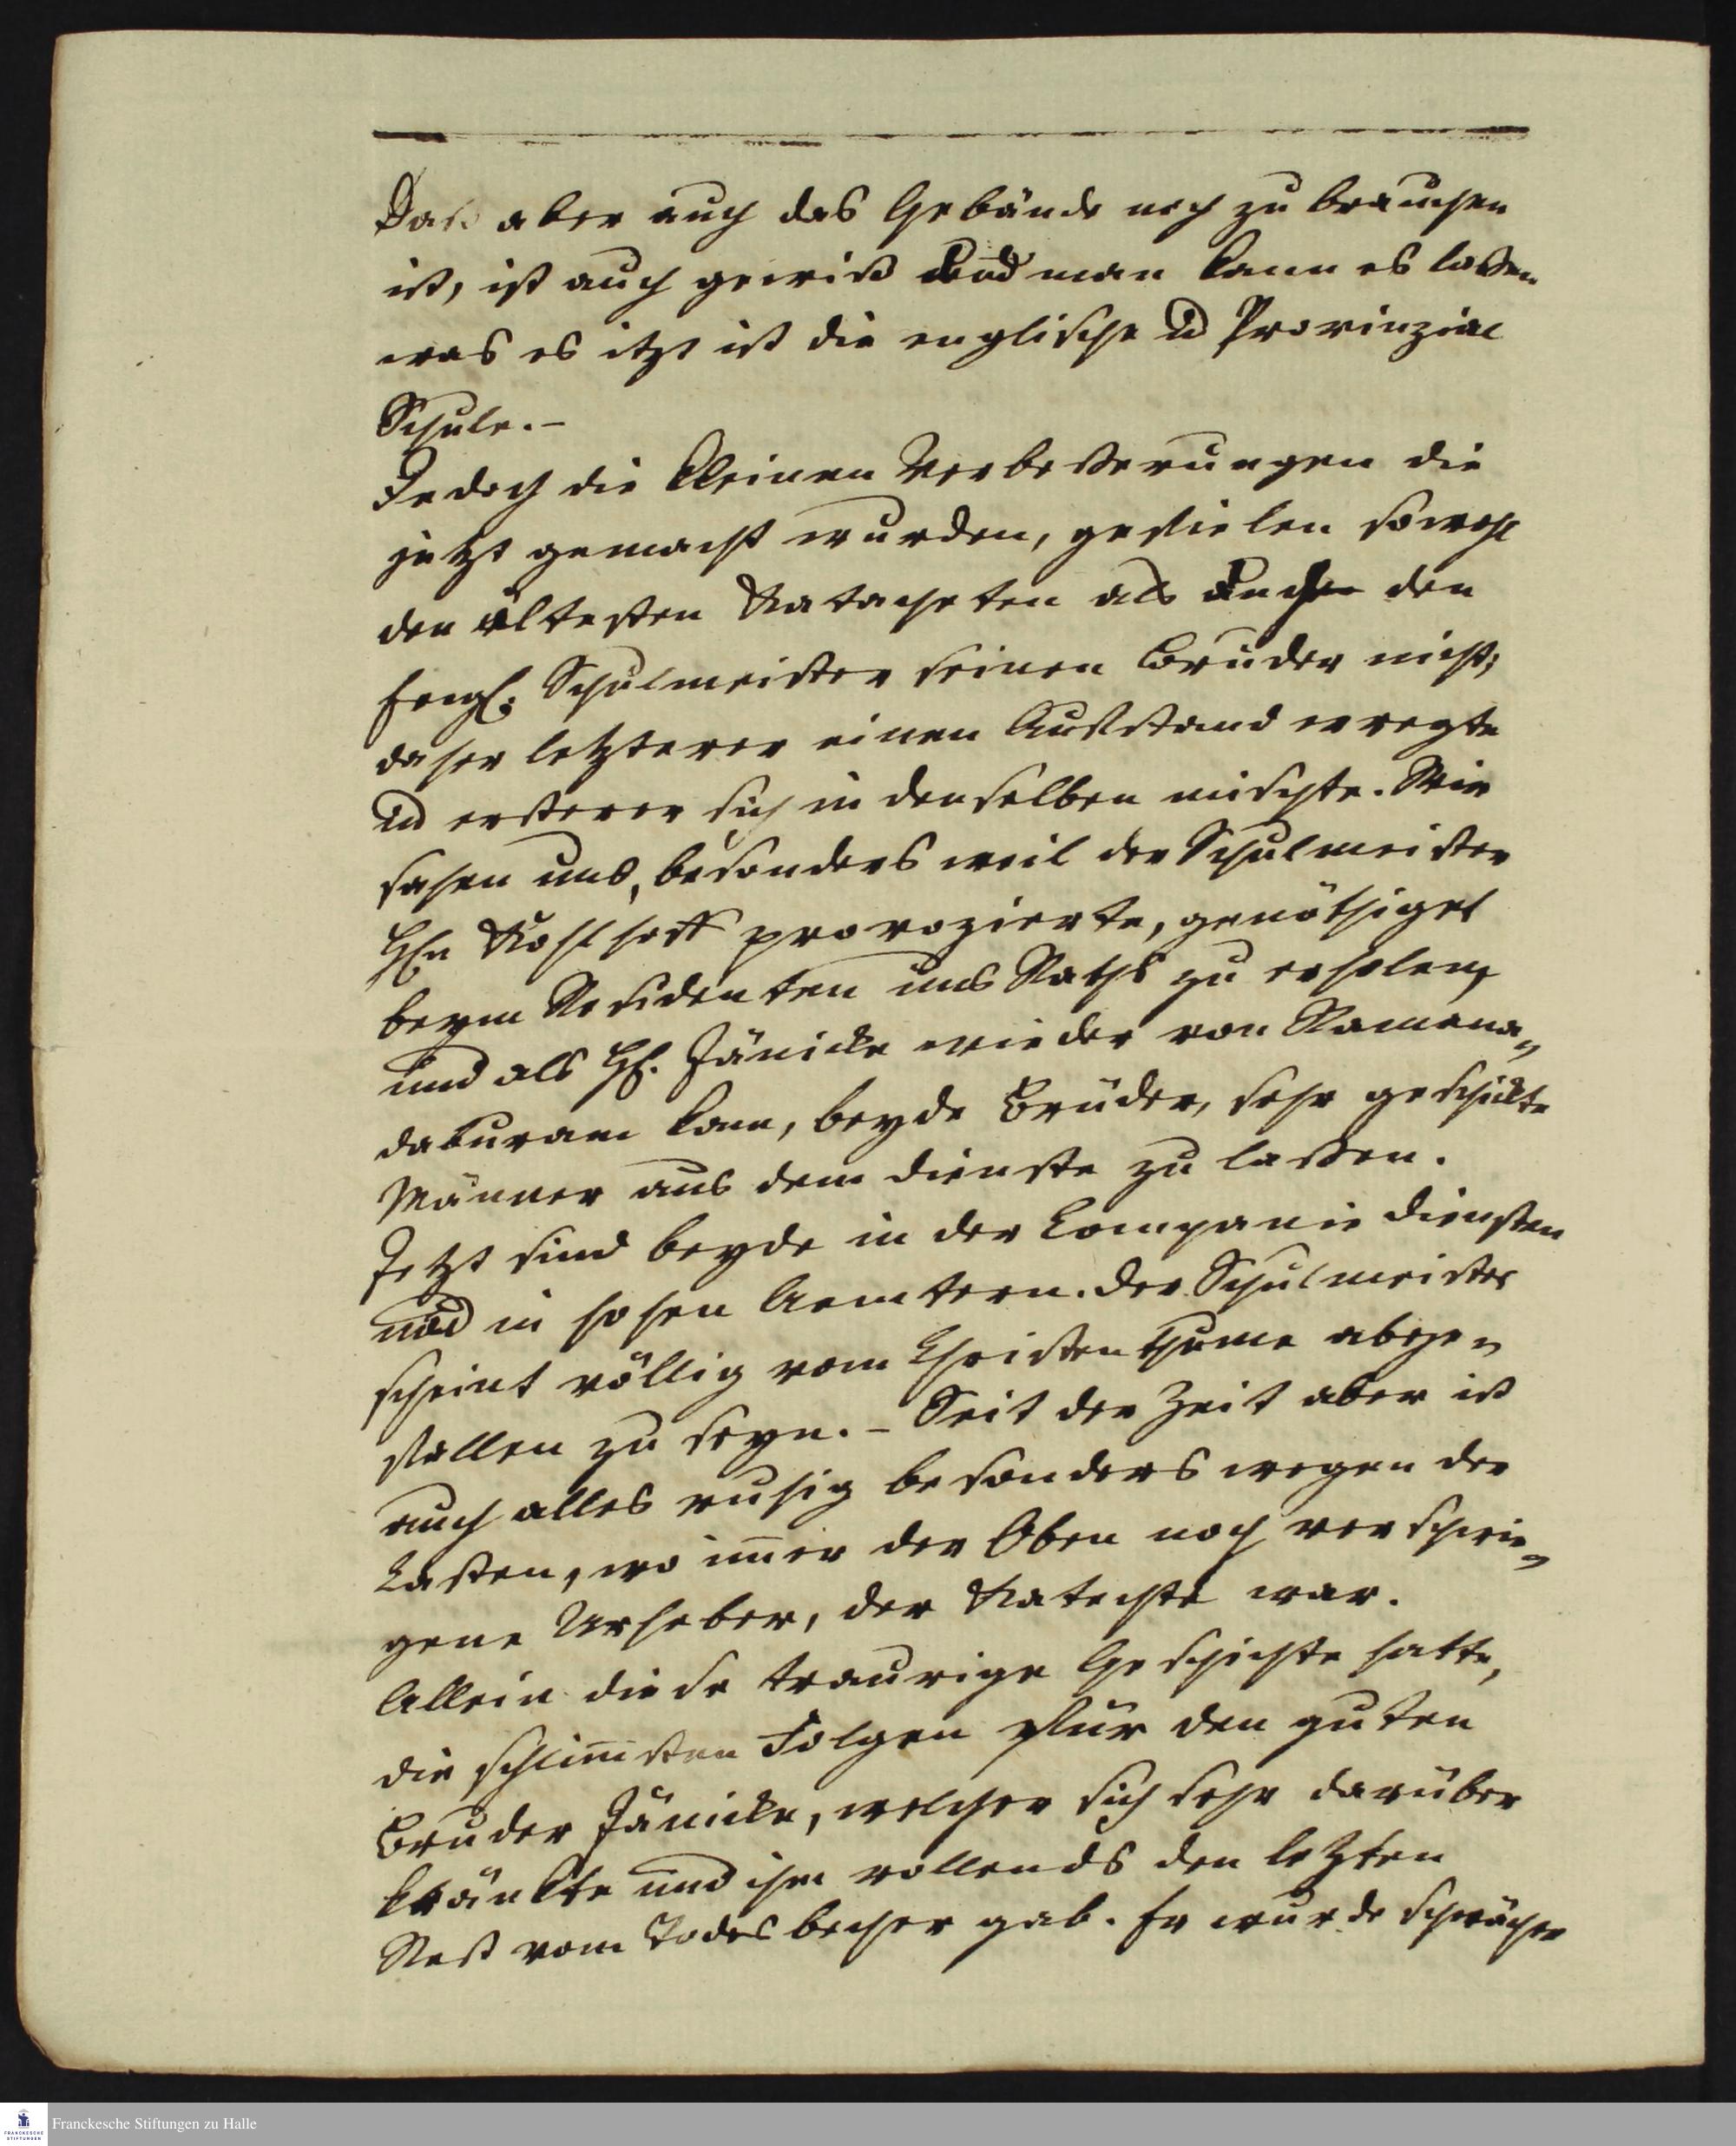 Daß aber auch das Gebäude noch zu brauchen
ist, ist auch gewiß und man kann es laßen
was es itzt ist die englische ud Provinzial
Schule. –
Jedoch die kleinen Verbeßerungen die
jetzt gemacht wurden, gefielen sowohl
den ältesten Katacheten als auch den
Engl. Schulmeister seinen Bruder nicht;
daher letzterer einen Aufstand erregte
ud ersterer sich in denselben mischte. Wir
sahen uns, besonders weil der Schulmeister
HEn Kohlhoff provozierte, genöthiget
beym Residenten uns Raths zu erholen,
und als HE. Jänicke wieder von Ramana-
daburam kam, beyde Brüder, sehr geschickte
Männer aus dem Dienste zu laßen.
Jetzt sind beyde in der Companie Diensten
und in hohen Aemtern. Der Schulmeister
scheint völlig vom Christenthume abge-
fallen zu seyn. – Seit der Zeit aber ist
auch alles ruhig besonders wegen der
Casten, wo im̄er der Oben noch verschwie-
gene Urheber, der Katechte war.
Allein diese traurige Geschichte hatte,
die schlim̄sten Folgen für den guten
Bruder Jänicke, welcher sich sehr darüber
kränkte und ihm vollends den letzten
Rest vom Todesbecher gab. Er wurde schwächer
Franckesche Stiftungen zu Halle
FRANCKESCHE
STIFTUNGEN